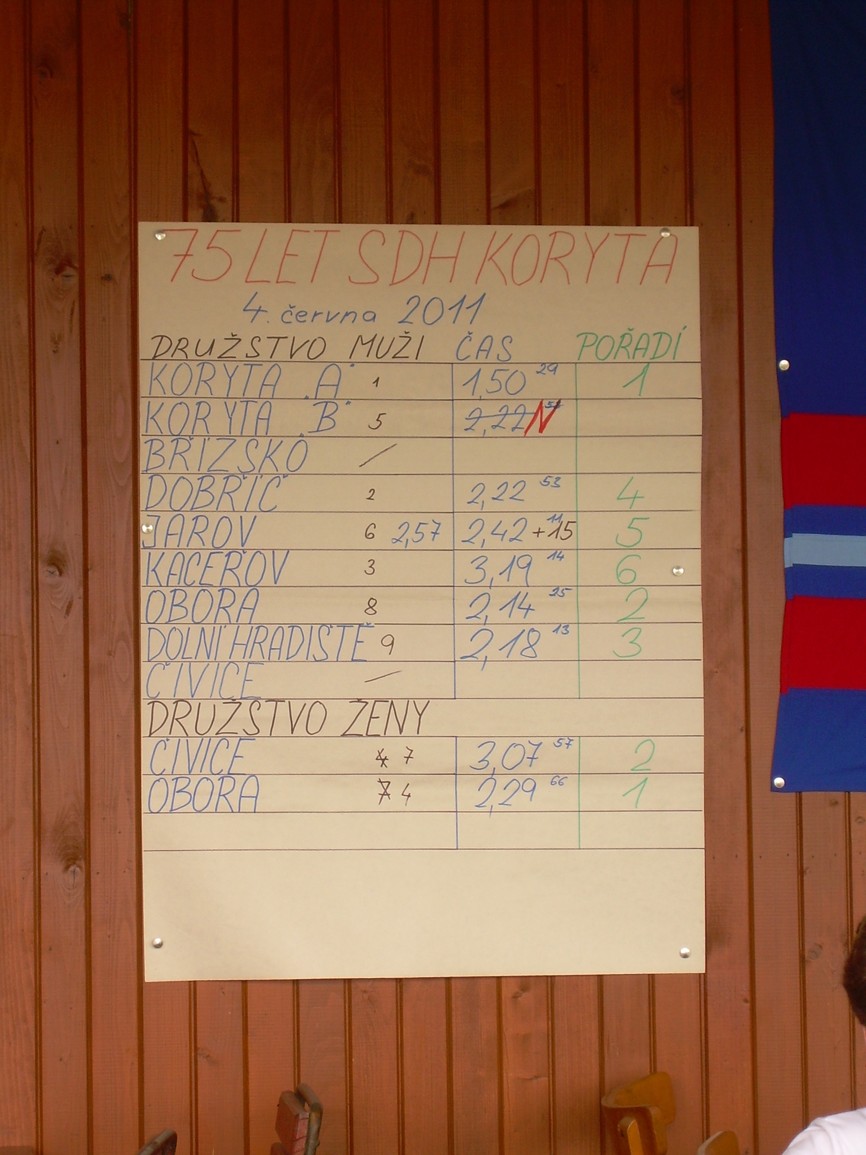 75 LET SDH KORYTA
4. června 2011
DRUŽSTVO MUŽI ČAS POŘADÍ
KORYTA "A" 1 1,50 29 1
KORYTA "B" 5 2,22 N
BŘÍZSKO /
DOBŘÍČ 2 2,22 53 4
JAROV 6 2,57 2,42 11 +15 5
KACEŘOV 3 3,19 14 6
OBORA 8 2,14 25 2
DOLNÍ HRADIŠTĚ 9 2,18 13 3
ČIVICE /
DRUŽSTVO ŽENY
ČIVICE 4 7 3,07 57 2
OBORA 7 4 2,29 66 1